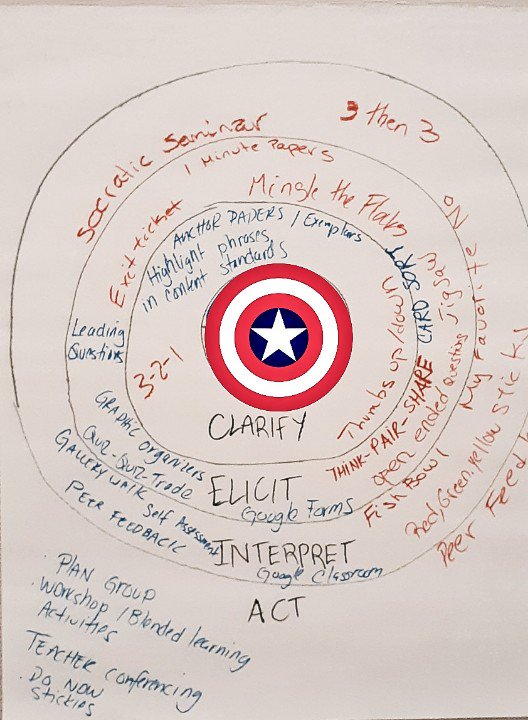 Socratic Seminar
3 then 3
1 Minute Papers
Mingle the
Exit ticket
ANCHOR PAPERS / Exemplars
Highlight phrases
in content standards
No
My Favorite
Jigsaw
CARD SORT
Thumbs up/down
Leading
Questions
3-2-1
THINK-PAIR-SHARE
open ended Questions
Fish Bowl
Red/Green/yellow Sticky
Peer Feed
CLARIFY
Graphic organizers
Quiz-Quiz-Trade
ELICIT
Google Forms
Gallery walk
Self Assessment
PEER FEEDBACK
INTERPRET
Google Classroom
ACT
· PLAN GROUP
· Workshop / Blended learning
Activities
TEACHER conferencing
· Do NOW
Stickies